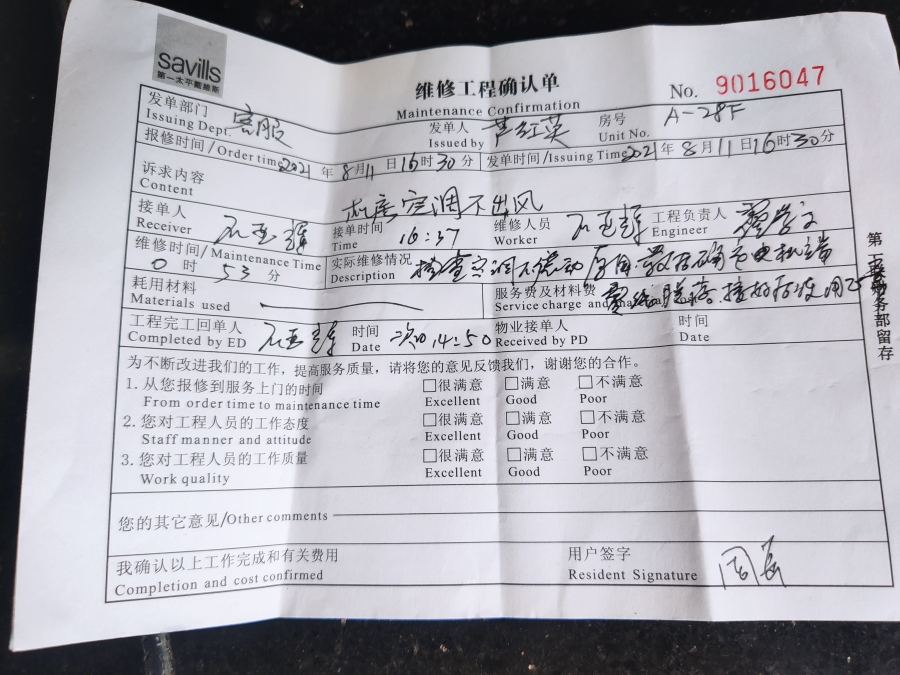 savills
第一太平戴维斯
维修工程确认单
Maintenance Confirmation
No. 9016047
发单部门 客服 发单人 芦红英 房号 A-28F
Issuing Dept. Issued by Unit No.
报修时间/Order time 2021年8月11日16时30分 发单时间/Issuing Time 2021年8月11日16时30分
诉求内容
Content
空调不出风
接单人 接单时间 16:37 维修人员 工程负责人
Receiver Time Worker Engineer
维修时间/Maintenance Time 实际维修情况
0时53分 Description 检查空调不
耗用材料 服务费及材料费
Materials used Service charge and
工程完工回单人 时间 14:50 物业接单人 时间
Completed by ED Date Received by PD Date
为不断改进我们的工作，提高服务质量，请将您的意见反馈我们，谢谢您的合作。
1. 从您报修到服务上门的时间 □很满意 □满意 □不满意
From order time to maintenance time Excellent Good Poor
2. 您对工程人员的工作态度 □很满意 □满意 □不满意
Staff manner and attitude Excellent Good Poor
3. 您对工程人员的工作质量 □很满意 □满意 □不满意
Work quality Excellent Good Poor
您的其它意见/Other comments
我确认以上工作完成和有关费用 用户签字
Completion and cost confirmed Resident Signature
务部留存